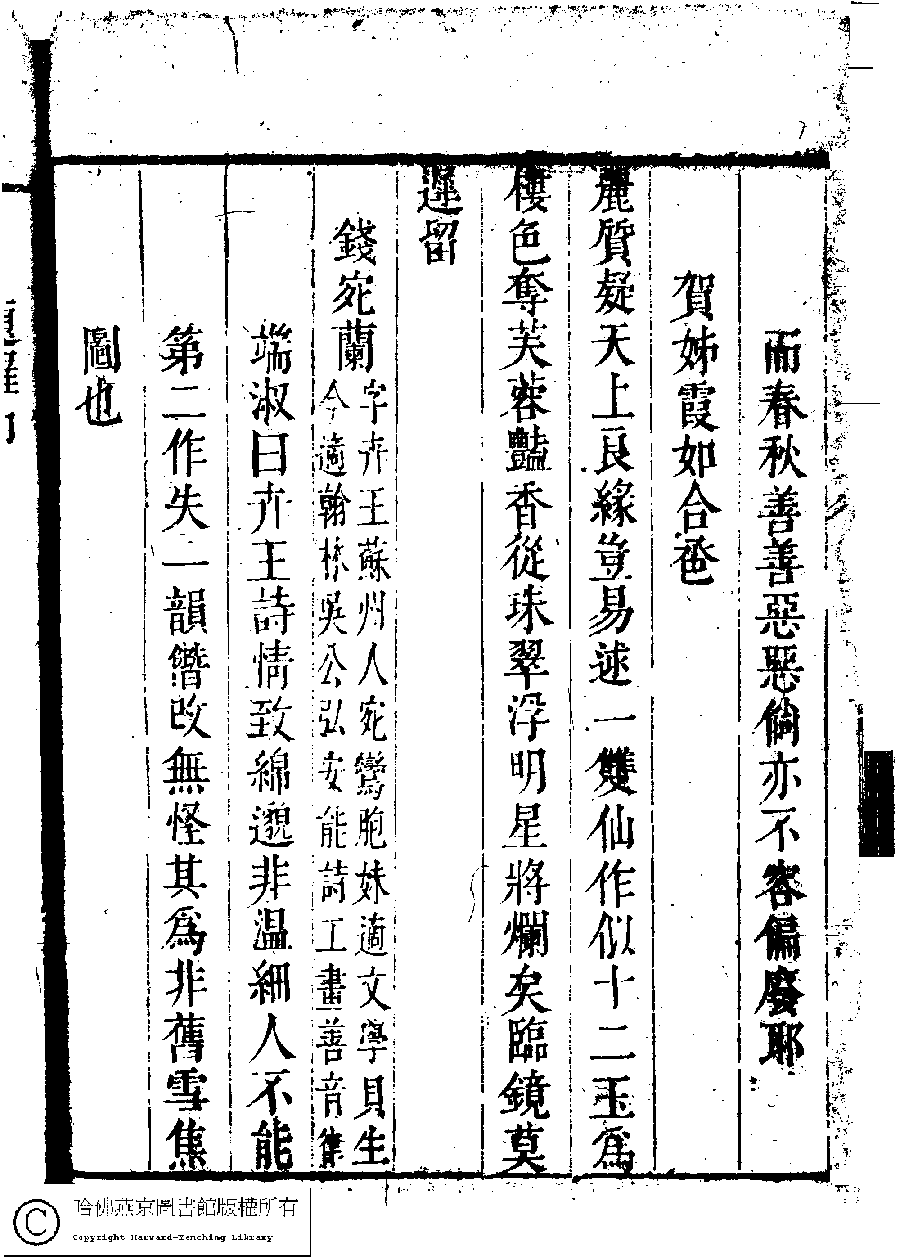 而春秋善善惡惡倘亦不容偏廢耶
賀姊霞如合巹
麗質疑天上良緣豈易逑一雙仙作似十二玉為
樓色奪芙蓉豔香從珠翠浮明星將爛矣臨鏡莫
遲留
錢宛蘭
字卉王蘇州人宛鸞胞妹適文學貝生
今適翰林吳公弘安能詩工畫善音集
端淑曰卉王詩情致綿邈非温細人不能
第二作失一韻僭改無怪其為非舊雪焦
圖也
哈佛燕京圖書館版權所有
Copyright Harvard-Yenching Library